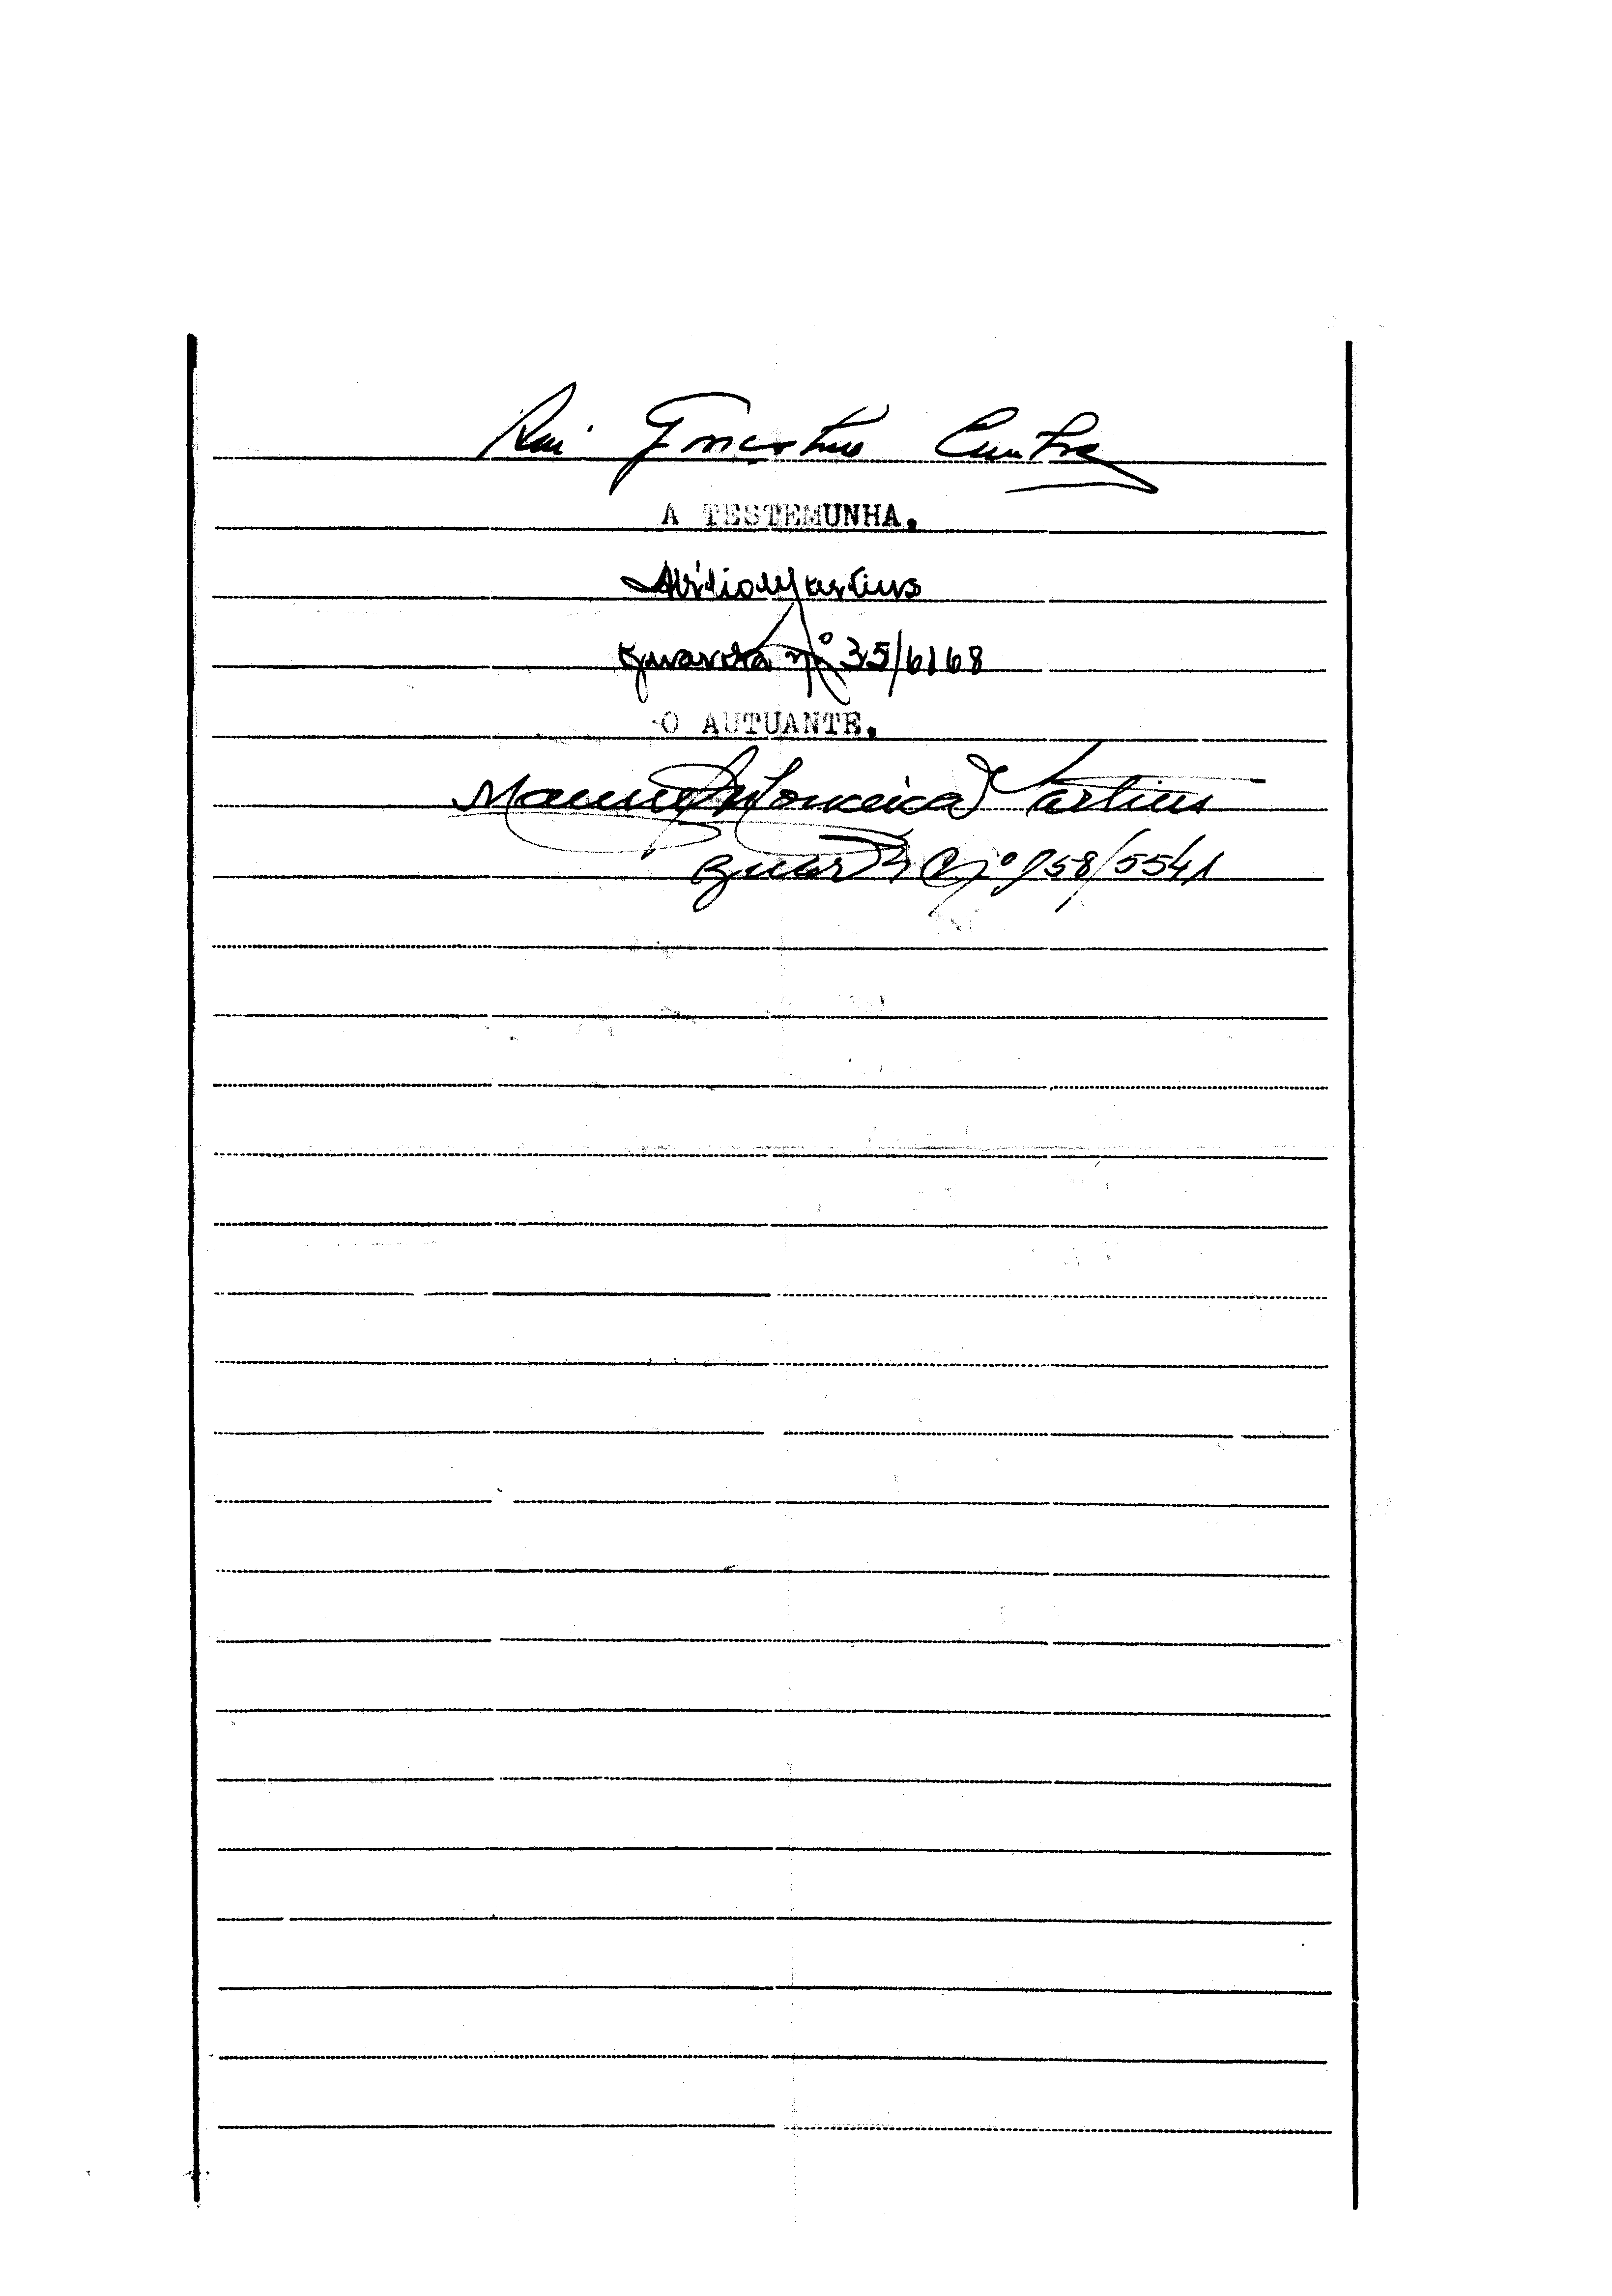 Rui Cunha
A TESTEMUNHA,
Abílio Martins
guarda nº 35/6168
O AUTUANTE,
Manuel Martins
guarda nº 58/5541